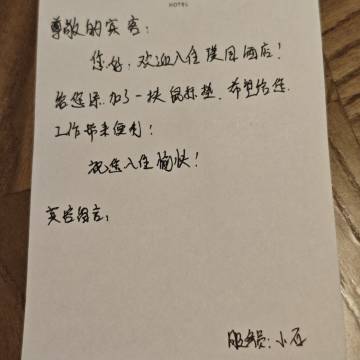 HOTEL
尊敬的宾客：
您好，欢迎入住璞同酒店！
给您添加了一块鼠标垫，希望给您
工作带来便利！
祝您入住愉快！
宾客留言：
服务员：小石